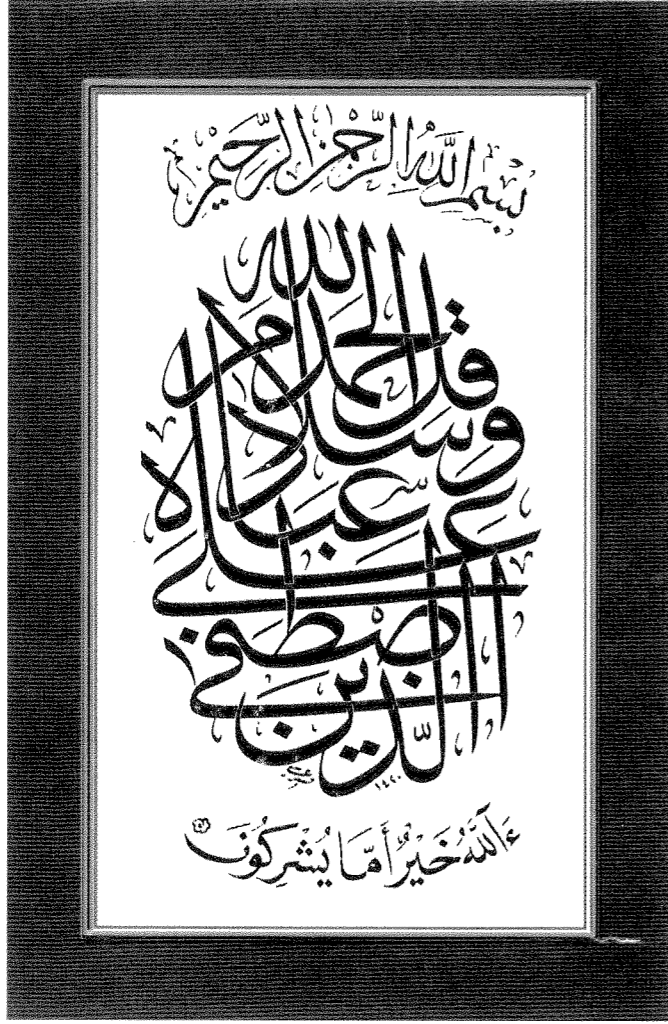 بِسْمِ اللَّهِ الرَّحْمَٰنِ الرَّحِيمِ
قل الحمد لله
وسلام
على عباده
الذين اصطفى
١٤٢٠
ءَآللَّهُ خَيْرٌ أَمَّا يُشْرِكُونَ ٥٩